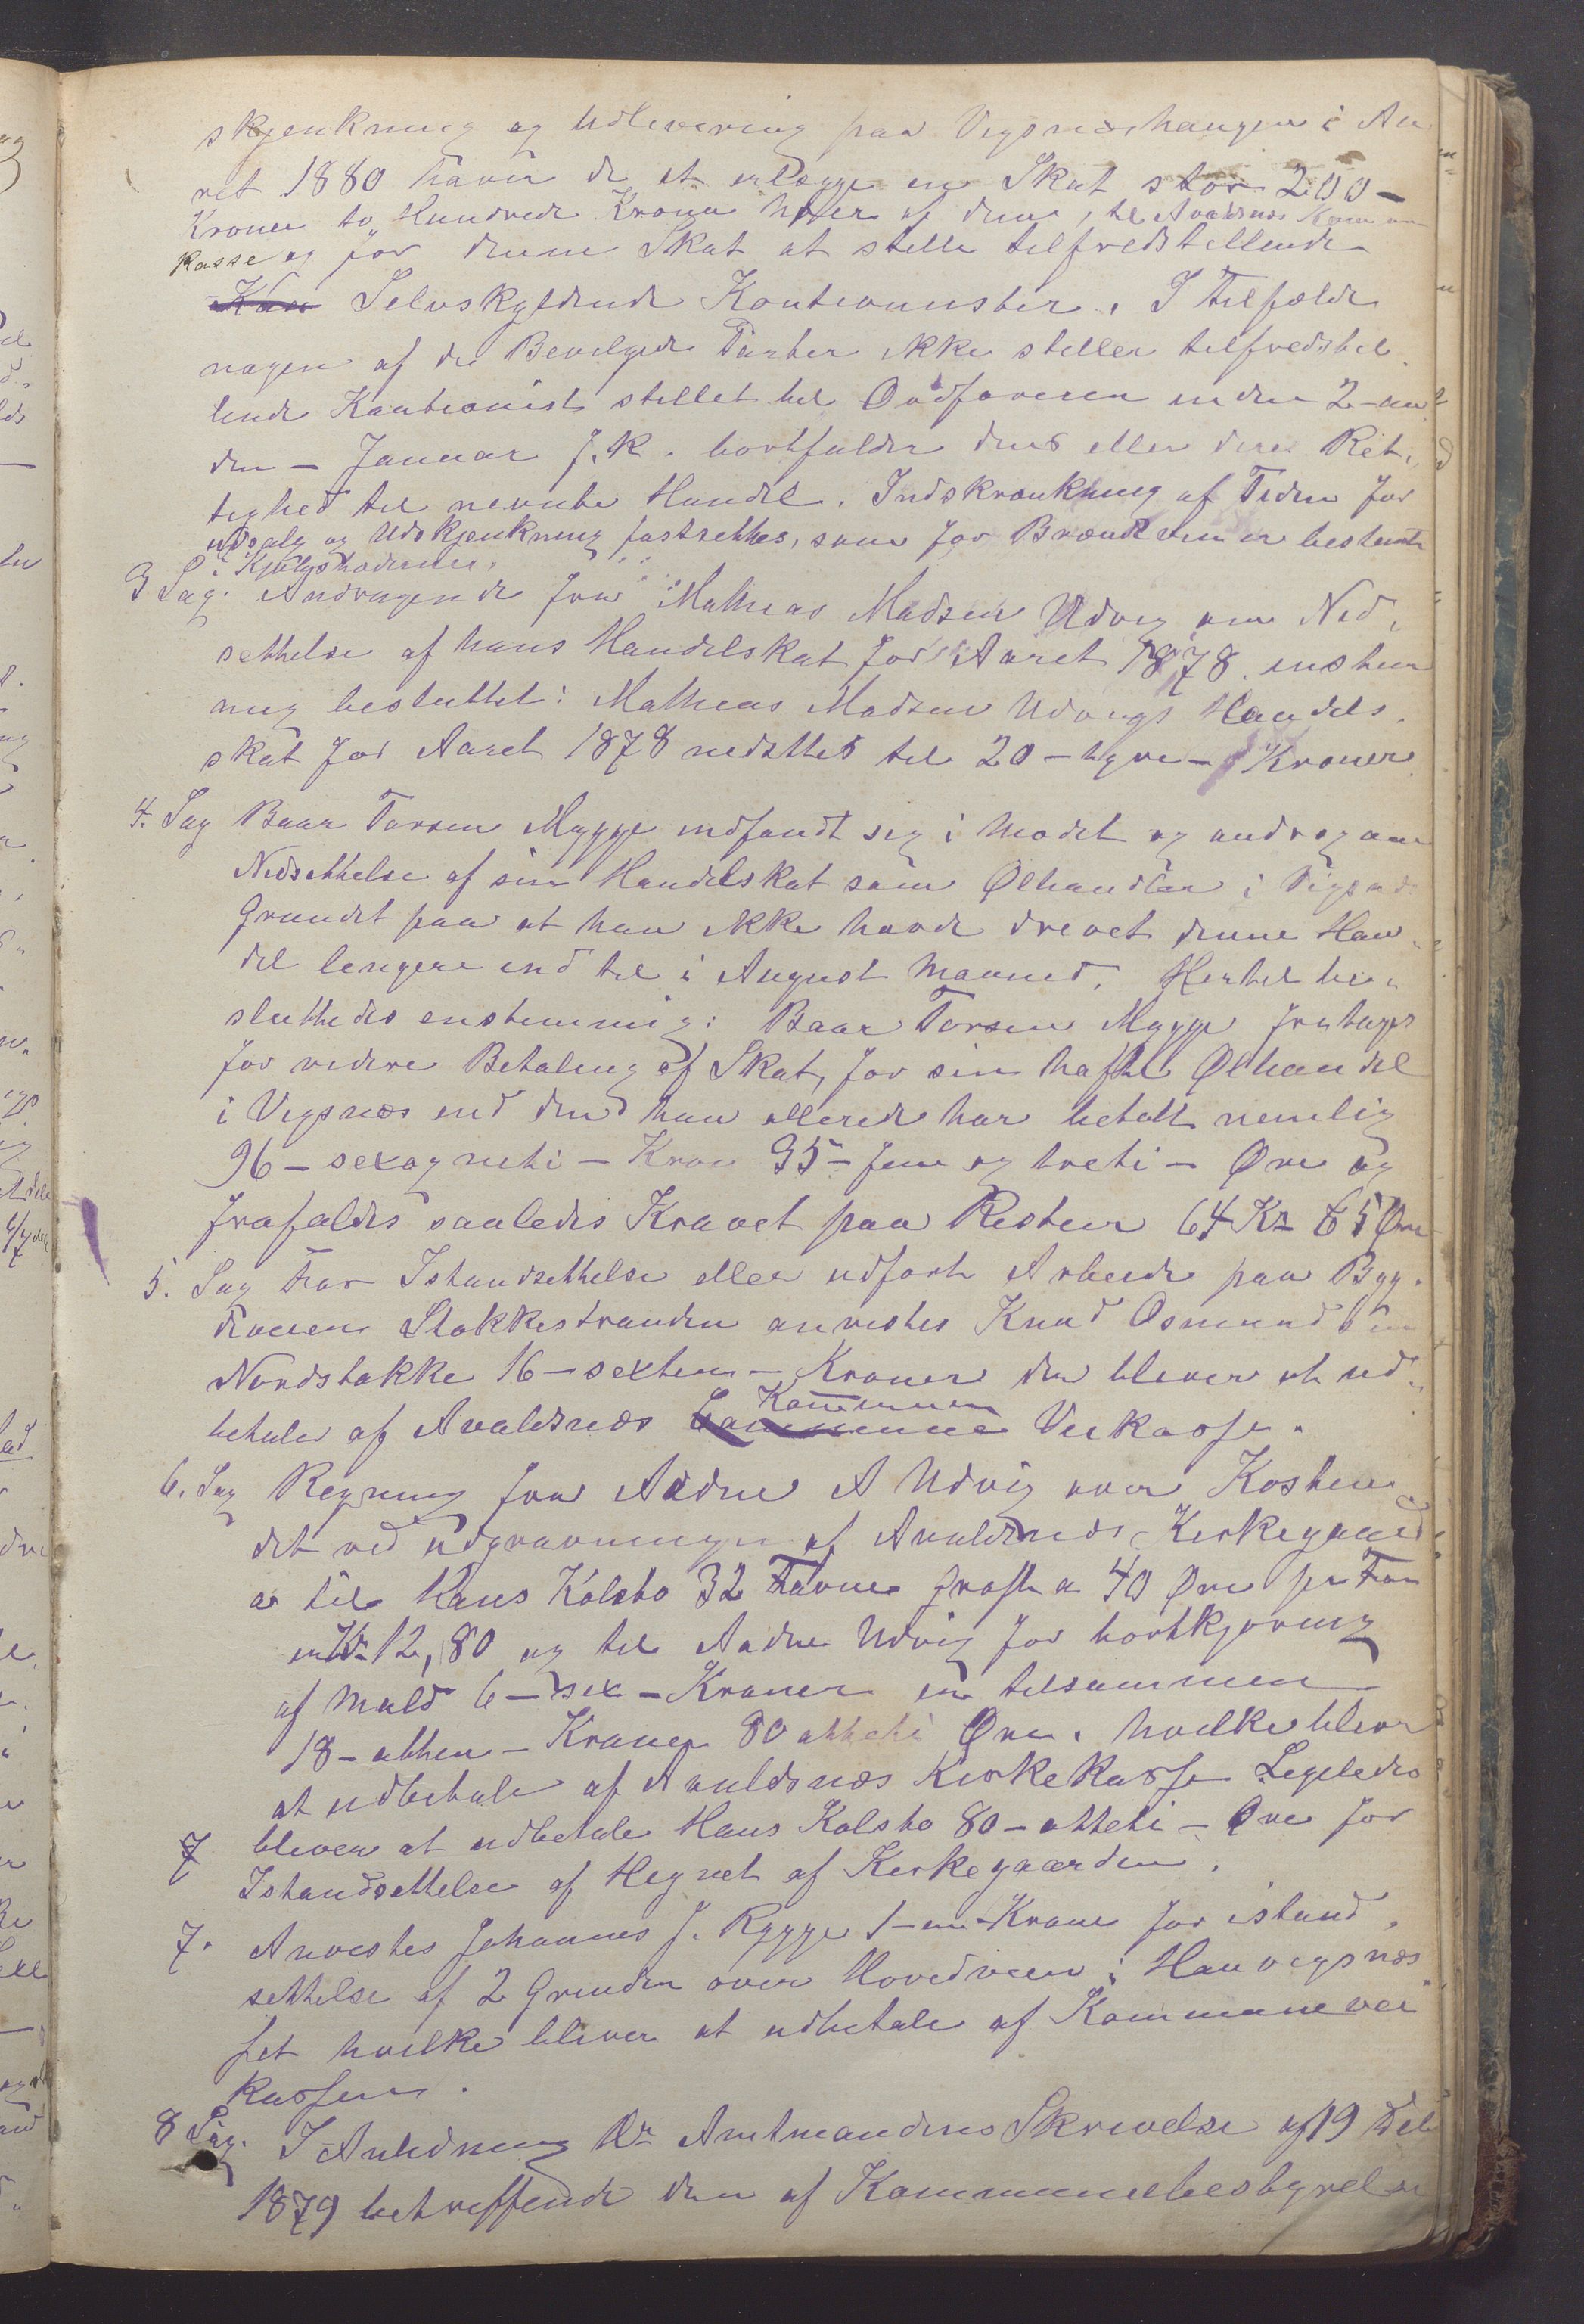 skjenkning og Udlevering paa Vigsneshaugen i Aa
ret 1880 haver de at erlægge en Skat stor 200 -
Kroner to Hundrede Kroner hver af dem, til Avaldsnes Kommune
Kasse og for denne Skat at stille tilfredstillende
Selvskyldende Kautionister. I Tilfælde
nogen af de Bevilgede Parter ikke stiller tilfredstil
lende Kautionist stillet til Ordføreren inden 2 - an
den - Januar f. K. bortfalder dens eller deres Ret
tighed til nevnte Handel. Indskrenkning af Tiden for
udsalg og Udskjenkning fastsettes, som for Brændevin er bestemt
i Kjøbstæderne.
3 Sag. Andragende fra Mathias Madsen Udvig om Ned
settelse af hans Handelskat for Aaret 1878. enstem
mig besluttet: Mathias Madsen Udvigs Handels
skat for Aaret 1878 nedsettes til 20 - tyve - Kroner
4. Sag Baar Torsen Mygge indfandt sig i Mødet og androg om
Nedsettelse af sin Handelskat som Ølhandler i Vigsnes
Grundet paa at han ikke havde drevet denne Han
del lengere end til i August Maaned. Hertil be
sluttedes enstemmig: Baar Torsen Mygge fritages
for videre Betaling af Skat, for sin hafte Ølhandel
i Vigsnæs end den han allerede har betalt nemlig
96 - sexognitti - Kron 35 - fem og treti - Øre og
frafaldes saaledes Kravet paa Resten 64 Kr 65 Øre
5. Sag For Istandsettelse eller udført Arbeide paa Byg
deveien Stokkestranden anvistes Knud Osmundsen
Nordstokke 16 - sexten - Kroner der bliver at ud
betales af Avaldsnes Kommunes Veikasse.
6. Sag Regning fra Aadne A Udvig over Kosten
det ved udgravningen af Avaldsnes Kirkegaard
a til Hans Kolstø 32 Favne Grøft a 40 Øre pr Fav
er Kr 12,80 og til Aadne Udvig for bortkjøring
af Muld 6 - sex - Kroner er tilsammen
18 - atten - Kroner 80 otteti Øre. hvilke bliver
at udbetale af Avaldsnæs Kirkekasse Ligeledes
7 bliver at udbetale Hans Kolstø 80 - otteti - Øre for
Istandsettelse af Hegnet af Kirkegaarden.
7. Anvistes Johannes J. Rygge 1 - en - Krone for istand
settelse af 2 Grinder over Hovedveien i
hvilke bliver at udbetale af Kommunevei
kassen.
8 Sag. I Anledning Hr Amtmandens Skrivelse af 19 Deb
1879 betreffende den af Kommunebestyrelse